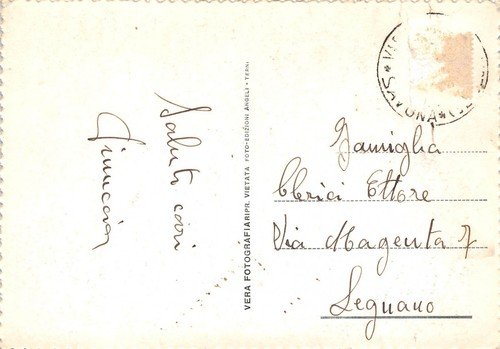 Saluti cari
Giuccia
VERA FOTOGRAFIA RIPR. VIETATA FOTO-EDIZIONI ANGELI - TERNI
SAVONA
Famiglia
Clerici Ettore
Via Magenta 7
Legnano